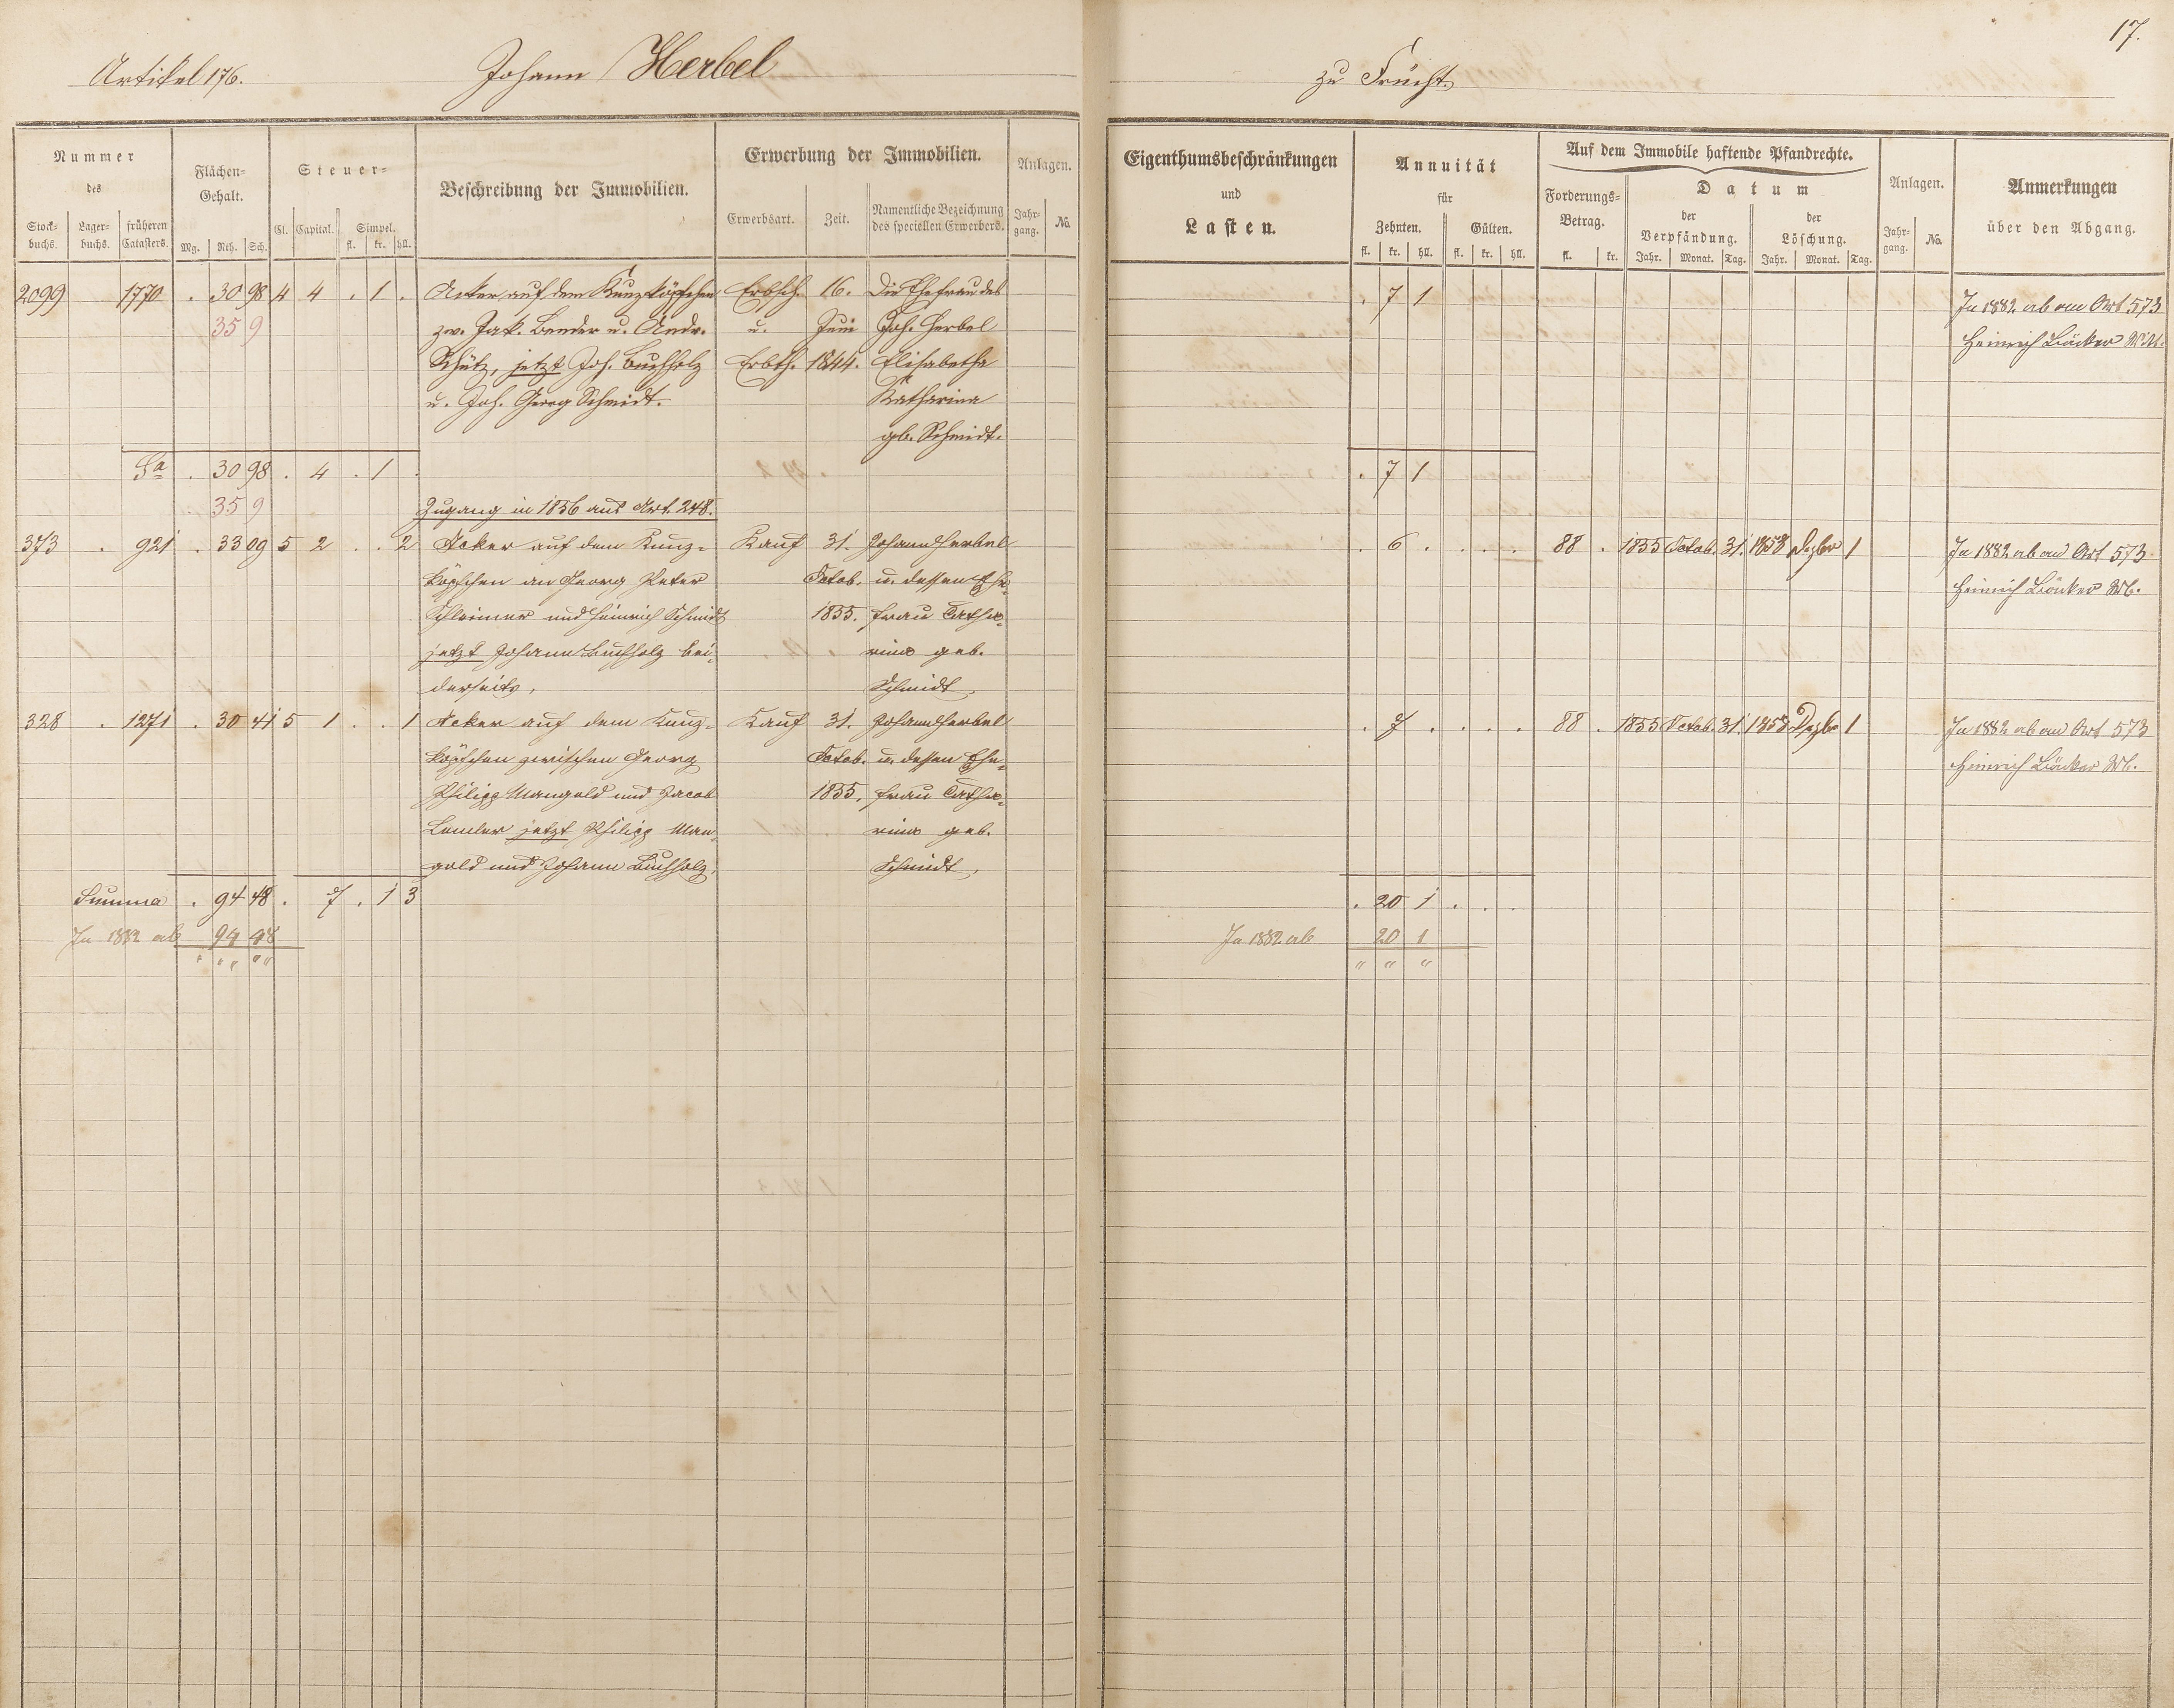 17.
Artikel 176. Johann Herbel zu Frücht.
Nummer des
Stockbuchs. Lagerbuchs. früheren Catasters.
Flächen-Gehalt.
Mg. Rth. Sch.
Steuer-
Cl. Capital. Simpel.
fl. kr. hll.
Beschreibung der Immobilien.
Erwerbung der Immobilien.
Erwerbsart. Zeit. Namentliche Bezeichnung des speciellen Erwerbers.
Anlagen.
Jahrgang. No.
Eigenthumsbeschränkungen
und
Lasten.
Annuität
für
Zehnten. Gülten.
fl. kr. hll. fl. kr. hll.
Auf dem Immobile haftende Pfandrechte.
Forderungs-Betrag.
fl. kr.
Datum
der Verpfändung. der Löschung.
Jahr. Monat. Tag. Jahr. Monat. Tag.
Anlagen.
Jahrgang. No.
Anmerkungen
über den Abgang.
2099 1770 . 30 98 4 4 . 1 . Acker auf dem Kunzköpfchen Erbsch. 16. Die Ehefrau des . 7 1 In 1882 ab an Art 573
35 9 zw. Jak. Bender u. Andr. u. Juni Joh. Herbel Heinrich
Schütz, jetzt Joh. Buchholz Erbth. 1844. Elisabetha
u. Joh. Georg Schmidt. Katharina
gb. Schmidt.
Sa . 30 98 . 4 . 1 . . 7 1
35 9 Zugang in 1856 aus Art. 248.
373 . 921 . 33 09 5 2 . . 2 Acker auf dem Kunz- Kauf 31. Johann Herbel . 6 . . . . 88 . 1855 Octob. 31. 1858 Dezbr 1 In 1882 ab an Art 573
köpfchen an Georg Peter Octob. u. dessen Ehe- Heinrich
und Heinrich Schmidt 1855. frau Catha-
jetzt Johann Buchholz bei- rina geb.
derseits, Schmidt,
328 . 1271 . 30 41 5 1 . . 1 Acker auf dem Kunz- Kauf 31. Johann Herbel . 7 . . . . 88 . 1855 Octob. 31. 1858 Dezbr 1 In 1882 ab an Art 573
köpfchen zwischen Georg Octob. u. dessen Ehe- Heinrich
Philipp Mangold und Jacob 1855. frau Catha-
jetzt Philipp Man- rina geb.
gold und Johann Buchholz, Schmidt,
Summa . 94 48 . 7 . 1 3 . 20 1 . . .
In 1882 ab 94 48 In 1882 ab 20 1
" " " " " " " "